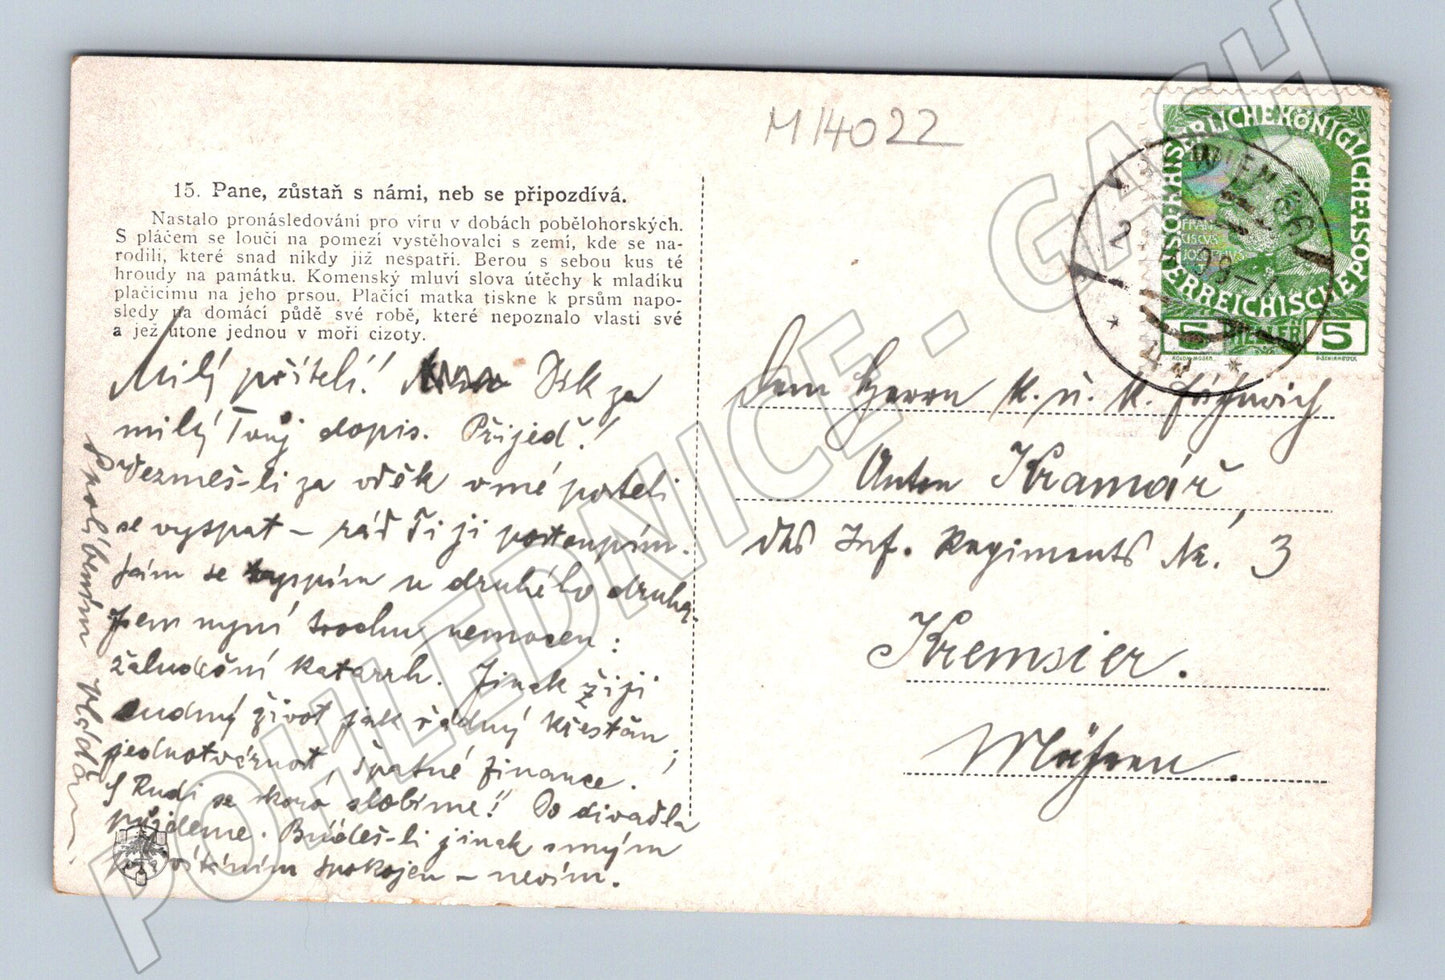 M14022
15. Pane, zůstaň s námi, neb se připozdívá.
Nastalo pronásledování pro víru v dobách pobělohorských.
S pláčem se loučí na pomezí vystěhovalci s zemí, kde se na-
rodili, které snad nikdy již nespatří. Berou s sebou kus té
hroudy na památku. Komenský mluví slova útěchy k mladíku
plačícímu na jeho prsou. Plačící matka tiskne k prsům napo-
sledy na domácí půdě své robě, které nepoznalo vlasti své
a jež utone jednou v moři cizoty.
Milý příteli! Dík za
milý Tvůj dopis. Přijeď!
Vezmeš-li za vděk v mé posteli
se vyspat – rád Ti ji postoupím.
Sám se vyspím u druhého druha.
Jsem nyní trochu nemocen:
žaludeční katarrh. Jinak žiji
nudný život jak řádný křesťan,
jednotvárnost, špatné finance.
S Rudi se skoro zlobíme! Do divadla
půjdeme. Budeš-li jinak s mým
spokojen – nevím.
S políbením
WIEN
2
SERLICHEKÖNIGLICHE
ÖSTERREICHISCHEPOST
FRAN
CISCVS
5 HELLER 5
KOLOM. MOSER.
F. SCHIRNBÖCK
Dem Herrn K. u. K. Fähnrich
Anton Kramář
des Inf. Regiments Nr. 3
Kremsier.
Mähren.
POHLEDNICE - GASH